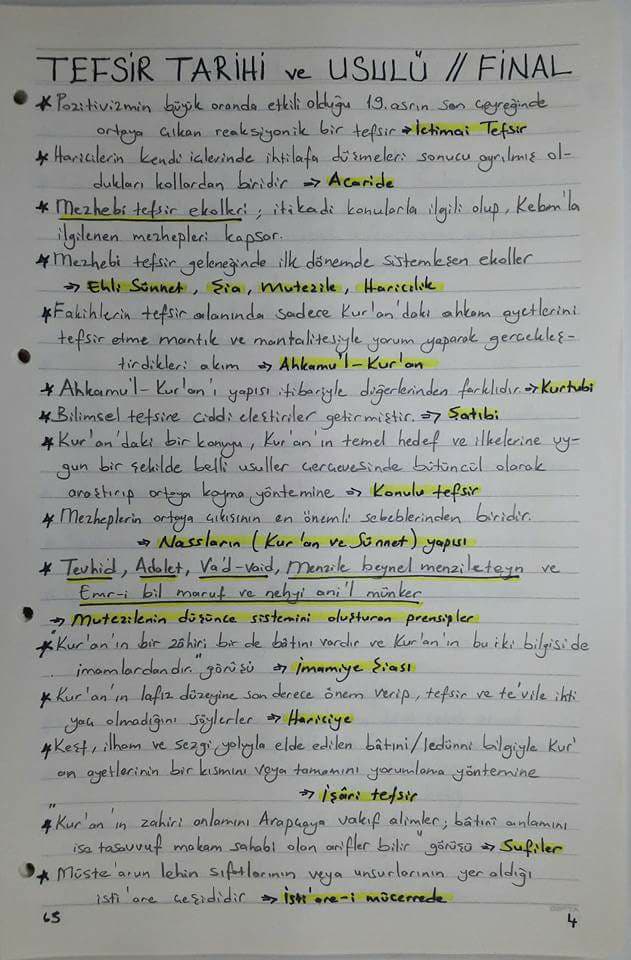 TEFSİR TARİHİ ve USULÜ // FİNAL
* Pozitivizmin büyük oranda etkili olduğu 19. asrın son çeyreğinde
ortaya çıkan reaksiyonik bir tefsir ⇒ İctimai Tefsir
* Haricilerin kendi içlerinde ihtilafa düşmeleri sonucu ayrılmış ol-
dukları kollardan biridir ⇒ Acaride
* Mezhebi tefsir ekolleri; itikadi konularla ilgili olup, Kelam'la
ilgilenen mezhepleri kapsar.
* Mezhebi tefsir geleneğinde ilk dönemde sistemleşen ekoller
⇒ Ehli Sünnet, Şia, Mutezile, Haricilik
* Fakihlerin tefsir alanında sadece Kur'an'daki ahkam ayetlerini
tefsir etme mantık ve mantalitesiyle yorum yaparak gerçekleş-
tirdikleri akım ⇒ Ahkamu'l-Kur'an
* Ahkamu'l-Kur'an'ı yapısı itibariyle diğerlerinden farklıdır. ⇒ Kurtubi
* Bilimsel tefsire ciddi eleştiriler getirmiştir. ⇒ Şatıbi
* Kur'an'daki bir konuyu, Kur'an'ın temel hedef ve ilkelerine uy-
gun bir şekilde belli usuller çerçevesinde bütüncül olarak
araştırıp ortaya koyma yöntemine ⇒ Konulu tefsir
* Mezheplerin ortaya çıkışının en önemli sebeblerinden biridir.
⇒ Nassların (Kur'an ve Sünnet) yapısı
* Tevhid, Adalet, Va'd-vaid, Menzile beynel menzileteyn ve
Emr-i bil maruf ve nehyi ani'l münker
⇒ Mutezilenin düşünce sistemini oluşturan prensipler
* "Kur'an'ın bir zâhiri bir de bâtını vardır ve Kur'an'ın bu iki bilgisi de
imamlardandır." görüşü ⇒ İmamiye Şiası
* Kur'an'ın lafız düzeyine son derece önem verip, tefsir ve te'vile ihti
yaç olmadığını söylerler ⇒ Hariciye
* Keşf, ilham ve sezgi yoluyla elde edilen bâtıni/ledünni bilgiyle Kur'
an ayetlerinin bir kısmını veya tamamını yorumlama yöntemine
⇒ İşâri tefsir
* "Kur'an'ın zahiri anlamını Arapçaya vakıf alimler; bâtıni anlamını
ise tasavvuf makam sahabi olan arifler bilir" görüşü ⇒ Sufiler
* Müste'arun lehin sıfatlarının veya unsurlarının yer aldığı
isti'are çeşididir ⇒ İsti'are-i mücerrede
65
4